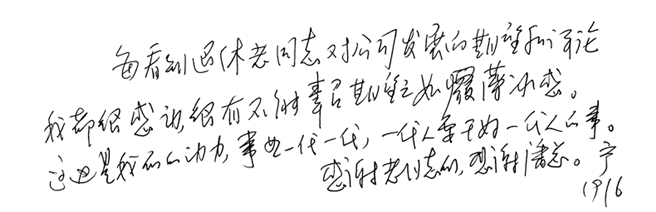 每看到退休老同志对公司发展的期望和评论
我都很感动，很有不能辜负期望之如履薄冰感。
这也是我们的动力，事如一代一代，一代人要干好一代人的事。
感谢老同志们，感谢潘总。宁
19/6